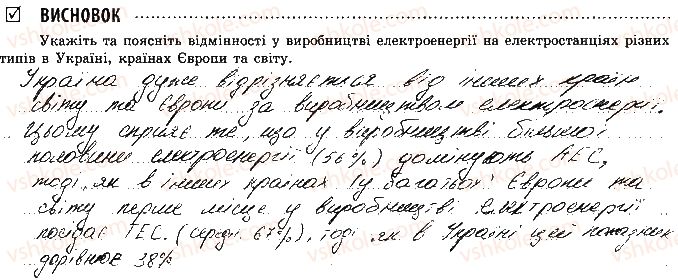 ВИСНОВОК
Укажіть та поясніть відмінності у виробництві електроенергії на електростанціях різних
типів в Україні, країнах Європи та світу.
Україна дуже відрізняється від інших країн
світу та Європи за виробництвом електроенергії.
Цьому сприяє те, що у виробництві більшої
половини електроенергії (56%) домінують АЕС,
тоді, як в інших країнах (у багатьох Європи та
світу перше місце у виробництві електроенергії
посідає ТЕС. (середн. 67%), тоді як в Україні цей показник
дорівнює 38%